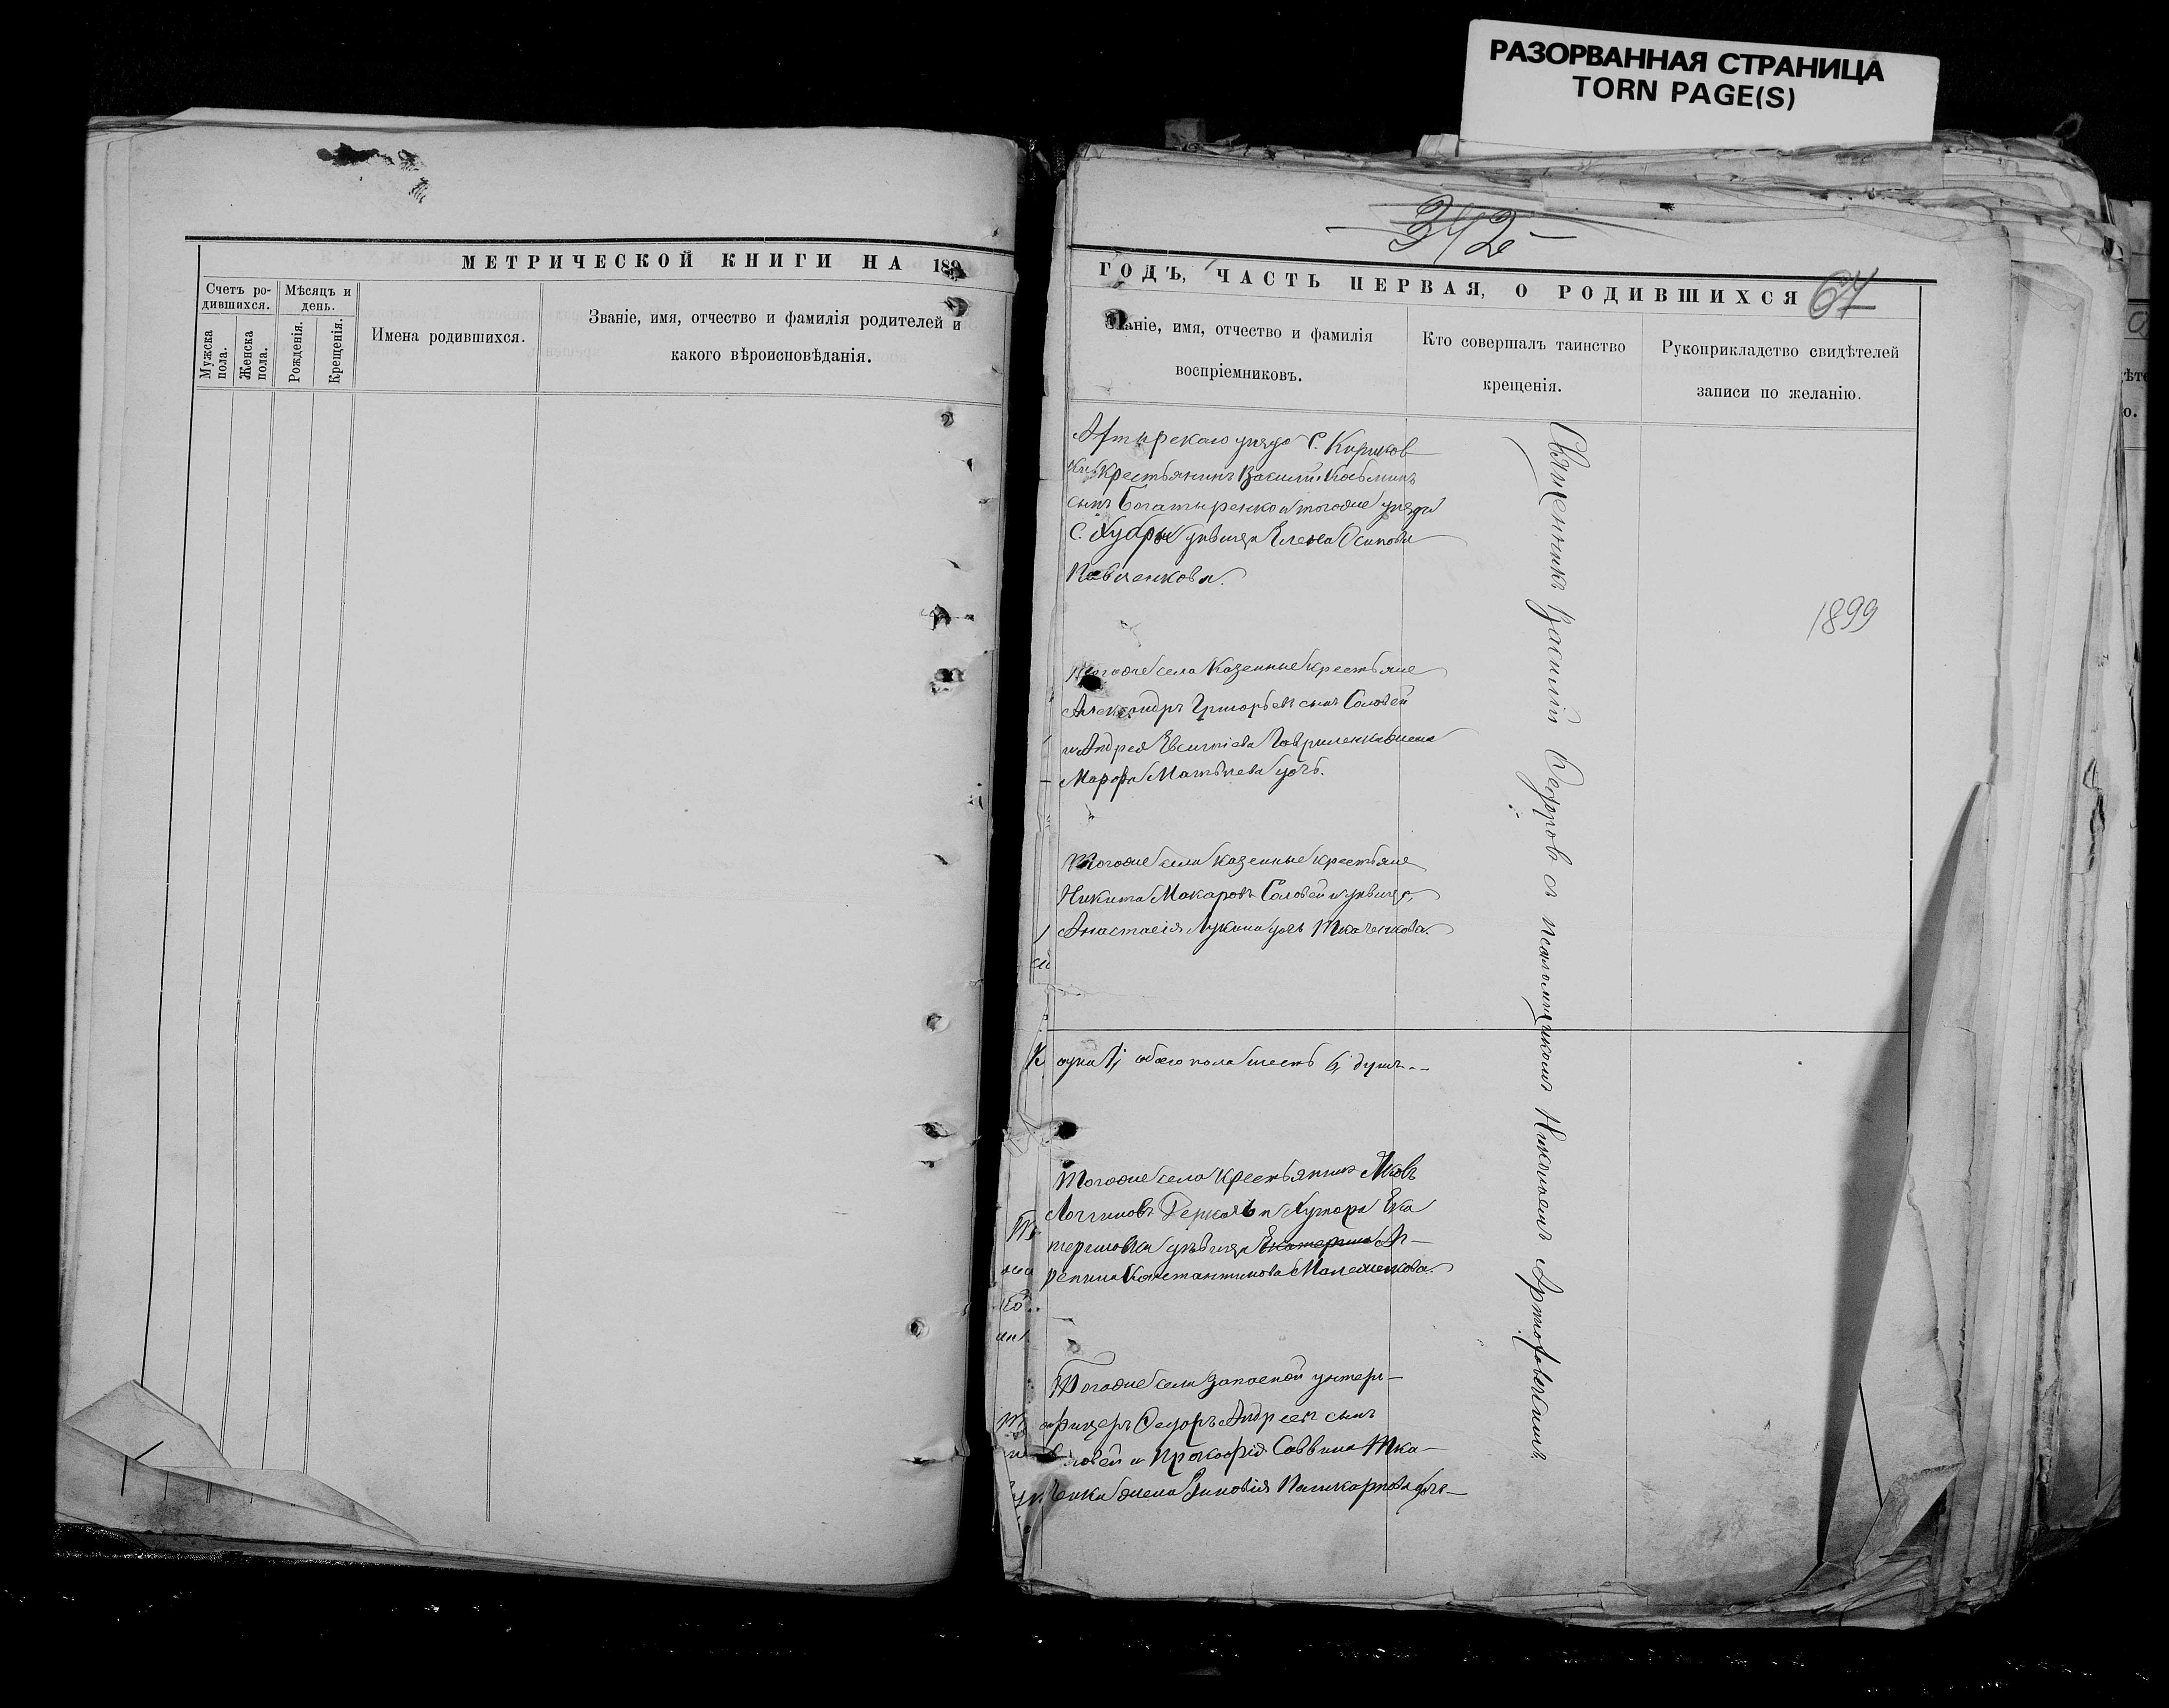 РАЗОРВАННАЯ СТРАНИЦА
TORN PAGE(S)
МЕТРИЧЕСКОЙ КНИГИ НА 189
Счетъ ро-
дившихся.
Мѣсяцъ и
день.
Мужска
пола.
Женска
пола.
Рожденія.
Крещенія.
Имена родившихся.
Званіе, имя, отчество и фамилія родителей и
какого вѣроисповѣданія.
- 342 -
ГОДЪ, ЧАСТЬ ПЕРВАЯ, О РОДИВШИХСЯ
67
Званіе, имя, отчество и фамилія
воспріемниковъ.
Кто совершалъ таинство
крещенія.
Рукоприкладство свидѣтелей
записи по желанію.
уѣзда С. Кириков
ки крестьянинъ Василій Козьминъ
сынъ Богатыренко и тогоже уѣзда
С. дѣвица Елена Осипова
Павленкова.
1899
Тогоже села казенные крестьяне
Александръ Григорьевъ сынъ Соловей
и Андрея Гавриленка жена
Марфа Матѣева дочь.
Тогоже села казенные крестьяне
Никита Макаровъ Соловей и дѣвица
Анастасія Лукина дочь Ткаченкова.
обоего пола шесть 6, душъ
Тогоже села крестьянинъ Яковъ
Логгиновъ и Хутора Ека
териновки дѣвица Екатерина И-
репина Константинова
Тогоже села запасной унтеръ-
офицеръ Федоръ Андреевъ сынъ
Соловей и Прокофія Саввина Тка-
ченка жена Зиновія Поликарпова дочь
Священникъ Василій Федоровъ съ псаломщикомъ Николаемъ